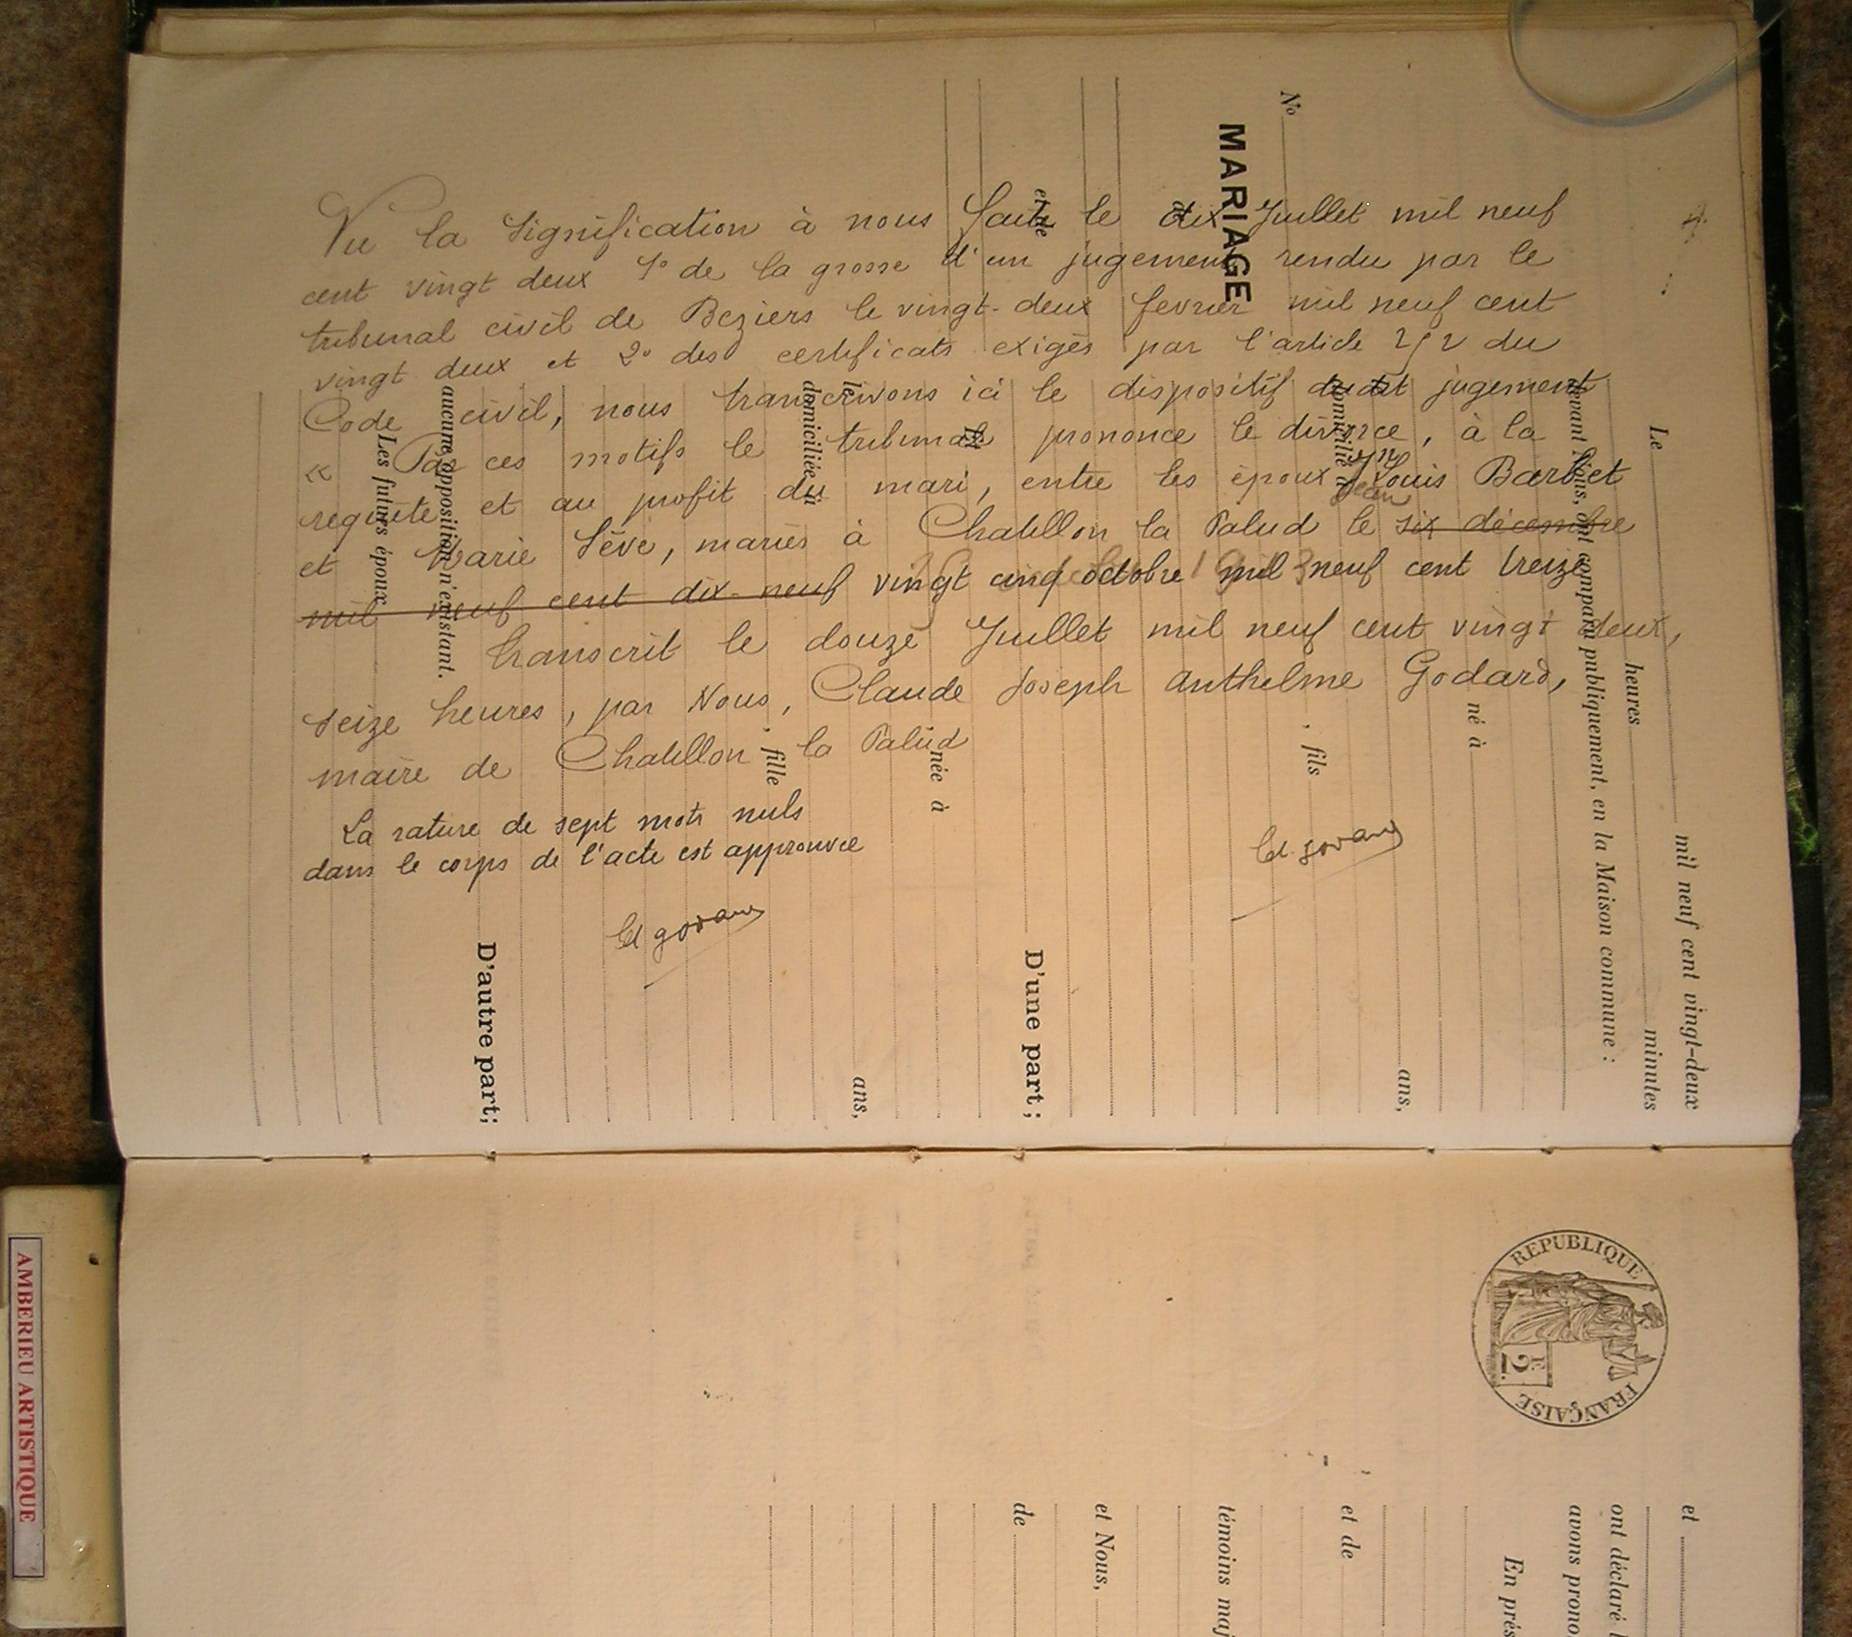 Vu la signification à nous faite le dix Juillet mil neuf
cent vingt deux 1° de la grosse d'un jugement rendu par le
tribunal civil de Beziers le vingt-deux fevrier mil neuf cent
vingt deux et 2° des certificats exigés par l'article 252 du
Code civil, nous transcrivons ici le dispositif dudit jugement
« Par ces motifs le tribunal prononce le divorce, à la
requête et au profit du mari, entre les époux Jean Louis Barbet
et Marie Sève, mariés à Chatillon la Palud le six décembre
mil neuf cent dix-neuf vingt cinq octobre mil neuf cent treize
Transcrit le douze Juillet mil neuf cent vingt deux,
seize heures, par Nous, Claude Joseph Anthelme Godard,
maire de Chatillon la Palud
La rature de sept mots nuls
dans le corps de l'acte est approuvée
Cl godard
Cl godard
No
MARIAGE
Le mil neuf cent vingt-deux
heures minutes
devant Nous, ont comparu publiquement, en la Maison commune :
né à
ans,
domicilié à
fils
et de
D'une part;
Et
née à
ans,
le
domiciliée à
fille
D'autre part;
aucune opposition n'existant.
Les futurs époux
REPUBLIQUE FRANÇAISE
2F
et
ont déclaré
avons prono
En prés
et de
témoins maj
et Nous,
de
AMBERIEU ARTISTIQUE